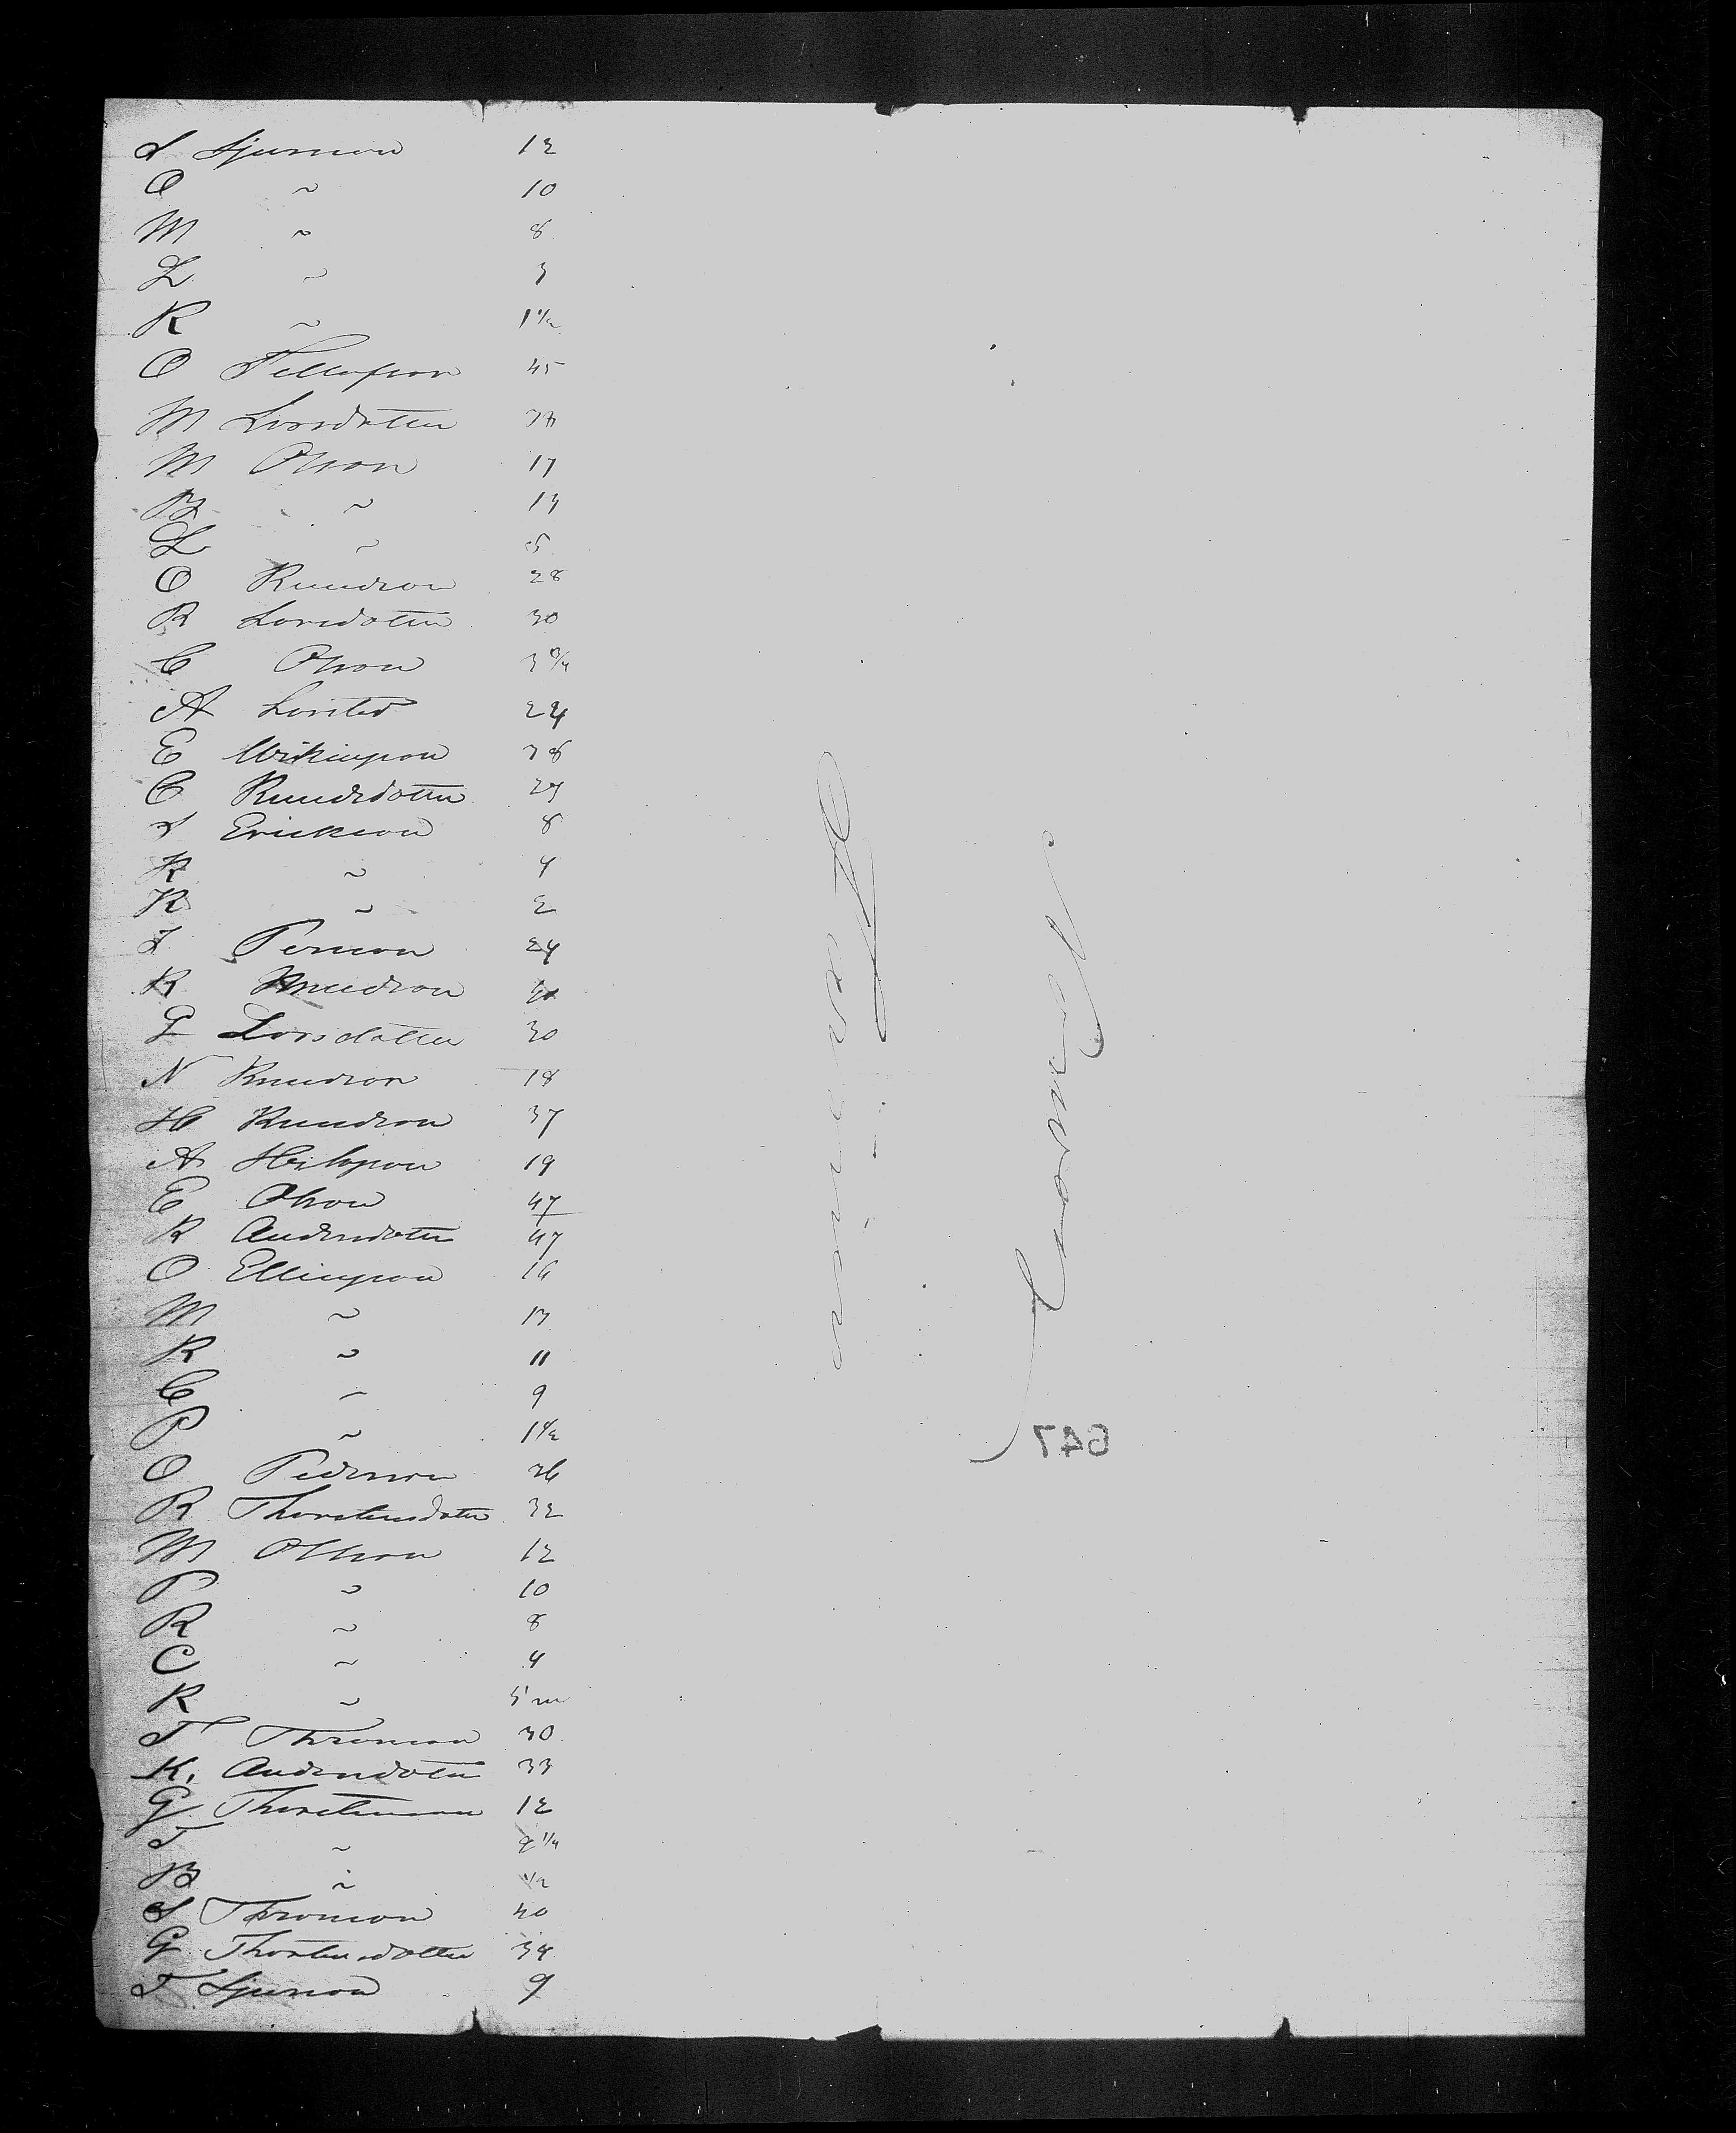 S Sjurson 12
O ~ 10
M ~ 8
L ~ 3
R ~ 1 1/2
O Tellefson 45
M Larsdatter 38
M Olson 17
B ~ 13
L ~ 5
O Knudson 28
R Larsdatter 30
C Olson 3 3/4
A 24
E Wikingson 38
C Knudsdatter 27
S Erickson 8
K ~ 4
K ~ 2
I Person 24
K Knudson
G Larsdatter 30
N Knudson 18
H Knudson 37
A 19
E Olson 47
K Andersdatter 47
O Ellingson 16
M ~ 13
K ~ 11
C ~ 9
P ~ 1 1/2
O Pederson 36
R Thorstensdatter 32
M Olson 12
P ~ 10
R ~ 8
C ~ 4
K ~ 5 m
T Thronson 30
K. Andersdatter 33
G Thorstenson 12
T ~ 9 1/4
B ~ 1/2
S Thronson 40
G Thorstensdatter 34
T Sjurson 9
647